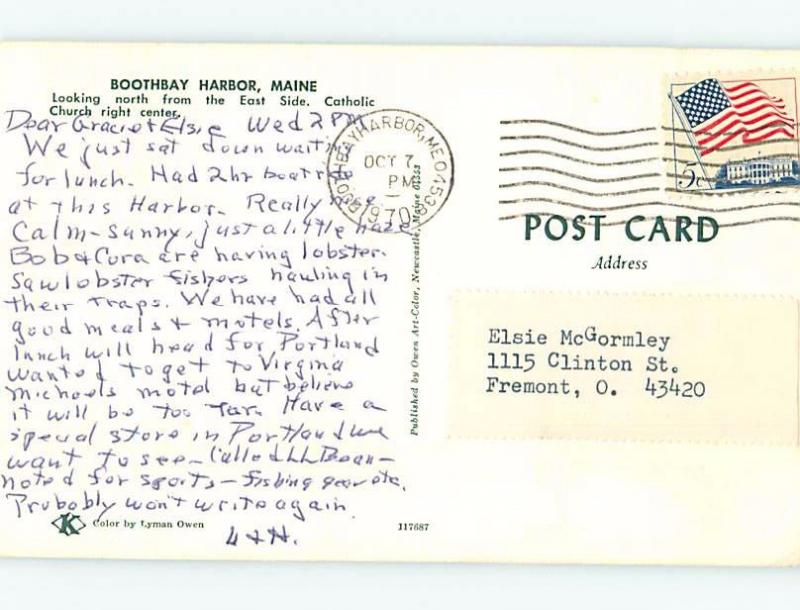 BOOTHBAY HARBOR, MAINE
Looking north from the East Side. Catholic
Church right center.
Dear Gracie & Elsie Wed 2 PM
We just sat down waiting
for lunch. Had 2 hr boat ride
at this Harbor. Really nice
Calm - sunny, just a little haze
Bob & Cora are having lobster.
Saw lobster fishers hauling in
their traps. We have had all
good meals & motels. After
lunch will head for Portland
wanted to get to Virginia
Michaels motel but believe
it will be too far. Have a
special store in Portland we
want to see - Called LL Bean -
noted for sports - fishing gear etc.
Probably won't write again.
L & H.
K
Color by Lyman Owen
117687
Published by Owen Art-Color, Newcastle, Maine 04553
BOOTHBAY HARBOR, ME 04538
OCT 7
PM
1970
5c
POST CARD
Address
Elsie McGormley
1115 Clinton St.
Fremont, O. 43420